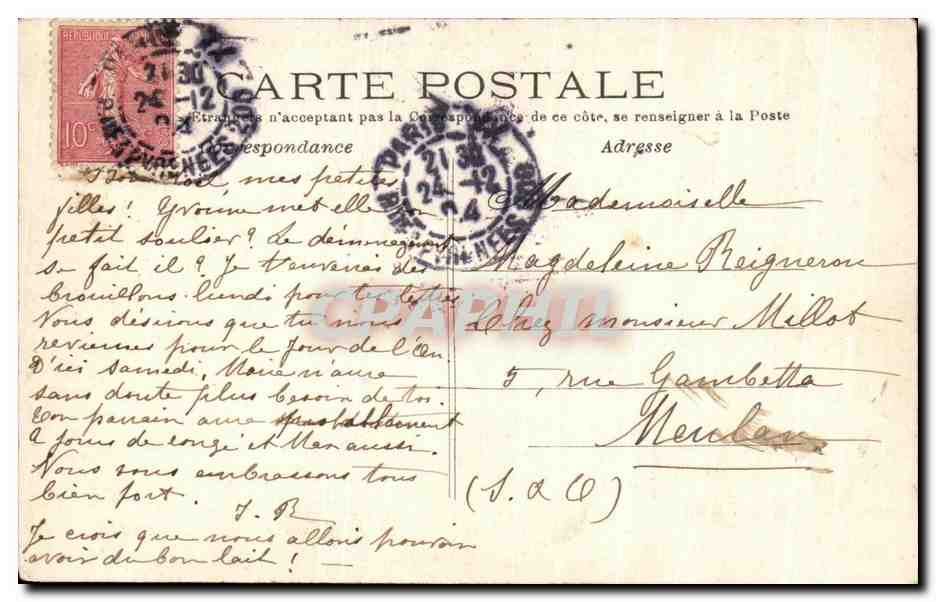 REPUBLIQUE
10c
PARIS
21 30
24 12
04
RUE DES PYRENEES 308
CARTE POSTALE
Etrangers n'acceptant pas la Correspondance de ce côté, se renseigner à la Poste
Correspondance
Adresse
mes petites
filles ! Yvonne met elle son
petit soulier ? Le déménagement
se fait il ? Je t'enverrai des
brouillons lundi pour tes lettres
Nous désirons que tu nous
reviennes pour le Jour de l'An.
D'ici samedi, Marie n'aura
sans doute plus besoin de toi.
Ton parrain aura
2 jours de congé et Max aussi.
Nous vous embrassons tous
bien fort.
J. R
Je crois que nous allons pouvoir
avoir du bon lait !
Mademoiselle
Magdeleine Reigneron
Chez monsieur Millot
5, rue Gambetta
Meulan
(S. & O)
CPAPHIL